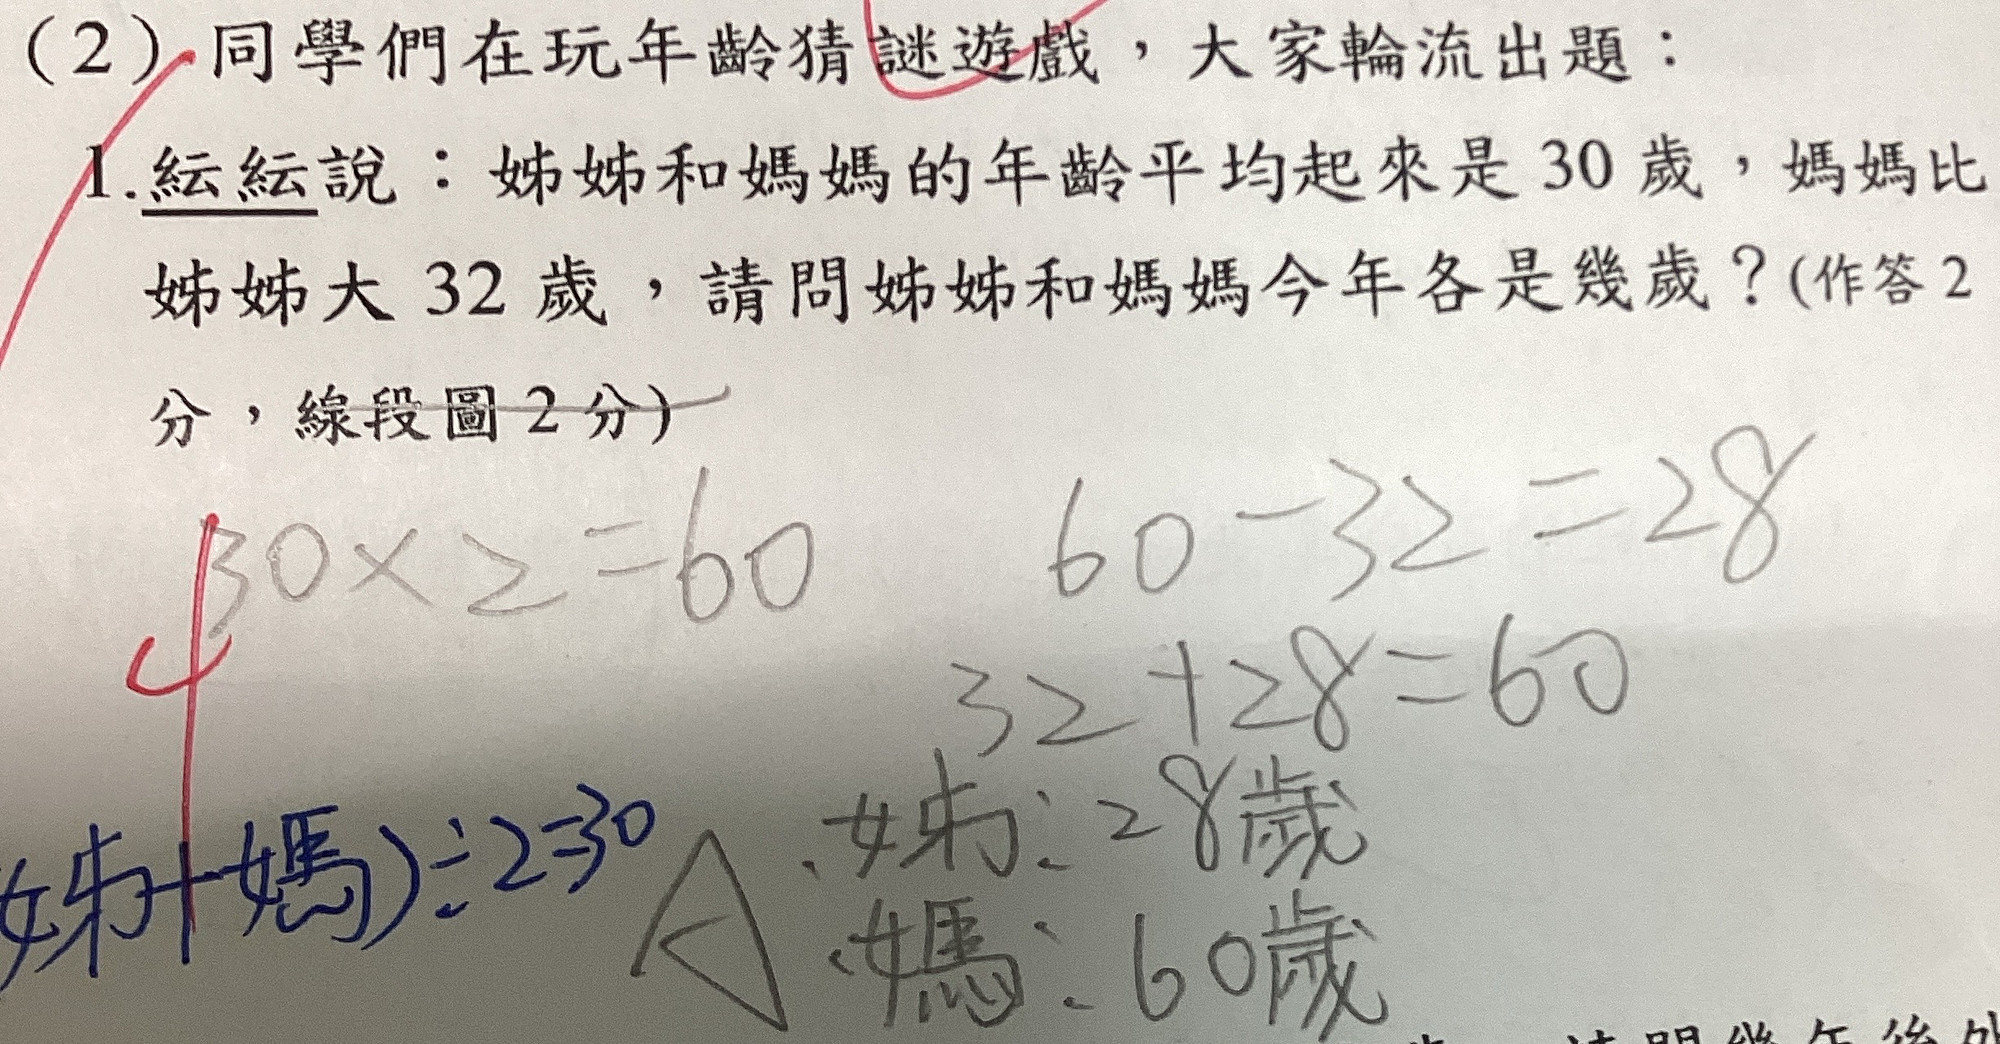 (2) 同學們在玩年齡猜謎遊戲，大家輪流出題：
1.紜紜說：姊姊和媽媽的年齡平均起來是 30 歲，媽媽比
姊姊大 32 歲，請問姊姊和媽媽今年各是幾歲？(作答 2
分，線段圖 2 分)
30×2=60
60-32=28
32+28=60
4
姊+媽)÷2=30
A 姊:28歲
媽:60歲
請問幾年後外